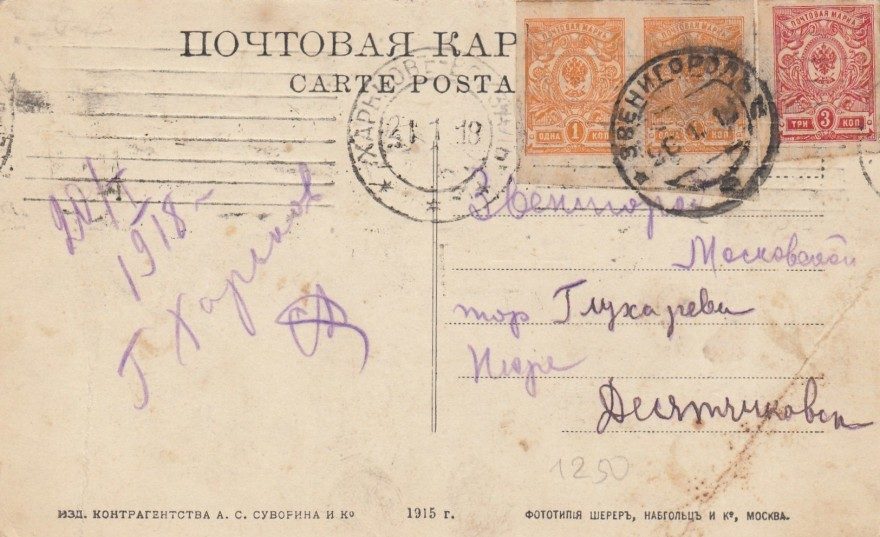 ПОЧТОВАЯ КАР
CARTE POSTA
ПОЧТОВАЯ МАРКА
ОДНА 1 КОП
ПОЧТОВАЯ МАРКА
1 КОП
ПОЧТОВАЯ МАРКА
ТРИ 3 КОП
ХАРЬКОВ
1 18
ЗВЕНИГОРОДЪ
20/I
1918
Г Харьков
Звенигород
Московской
тор Глухареви
Шуре
Десятчиковск
1250
ИЗД. КОНТРАГЕНТСТВА А. С. СУВОРИНА И Кº
1915 г.
ФОТОТИПІЯ ШЕРЕРЪ, НАБГОЛЬЦЪ И Кº, МОСКВА.